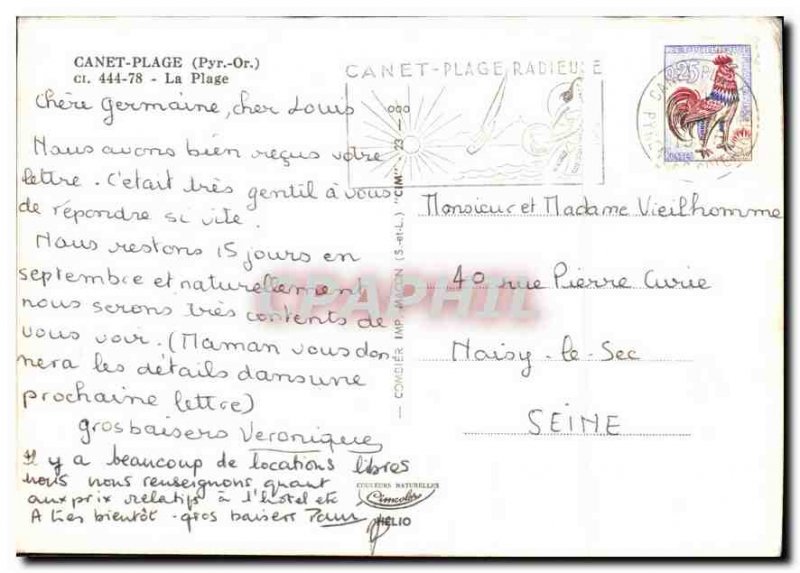 CANET-PLAGE (Pyr.-Or.)
CI. 444-78 - La Plage
CANET-PLAGE RADIEUSE
0,25
Chère Germaine, cher Louis
Nous avons bien reçus votre
lettre. C'etait très gentil à vous
de répondre si vite.
Nous restons 15 jours en
septembre et naturellement
nous serons très contents de
vous voir. (Maman vous don
nera les détails dans une
prochaine lettre)
gros baisers Veronique
Il y a beaucoup de locations libres
nous nous renseignons quant
aux prix relatifs à l'hôtel etc
A très bientôt - gros baisers
COMBIER IMP. MACON (S.-et-L.) "CIM" - 23 -
Monsieur et Madame Vieilhomme
40 rue Pierre Curie
Noisy-le-Sec
SEINE
COULEURS NATURELLES
Cimcolor
HÉLIO
CPAPHIL